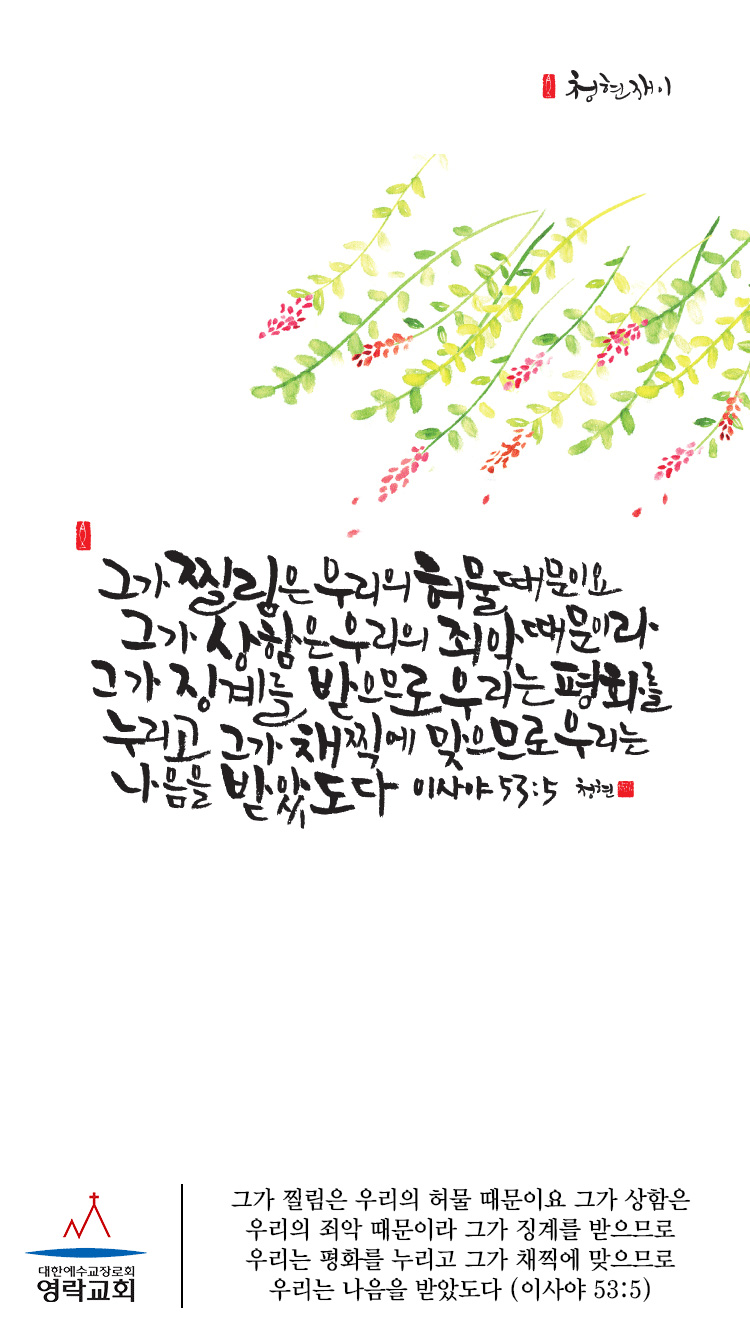 청현재이
그가 찔림은 우리의 허물 때문이요
그가 상함은 우리의 죄악 때문이라
그가 징계를 받으므로 우리는 평화를
누리고 그가 채찍에 맞으므로 우리는
나음을 받았도다 이사야 53:5 청현
그가 찔림은 우리의 허물 때문이요 그가 상함은
우리의 죄악 때문이라 그가 징계를 받으므로
우리는 평화를 누리고 그가 채찍에 맞으므로
우리는 나음을 받았도다 (이사야 53:5)
대한예수교장로회
영락교회